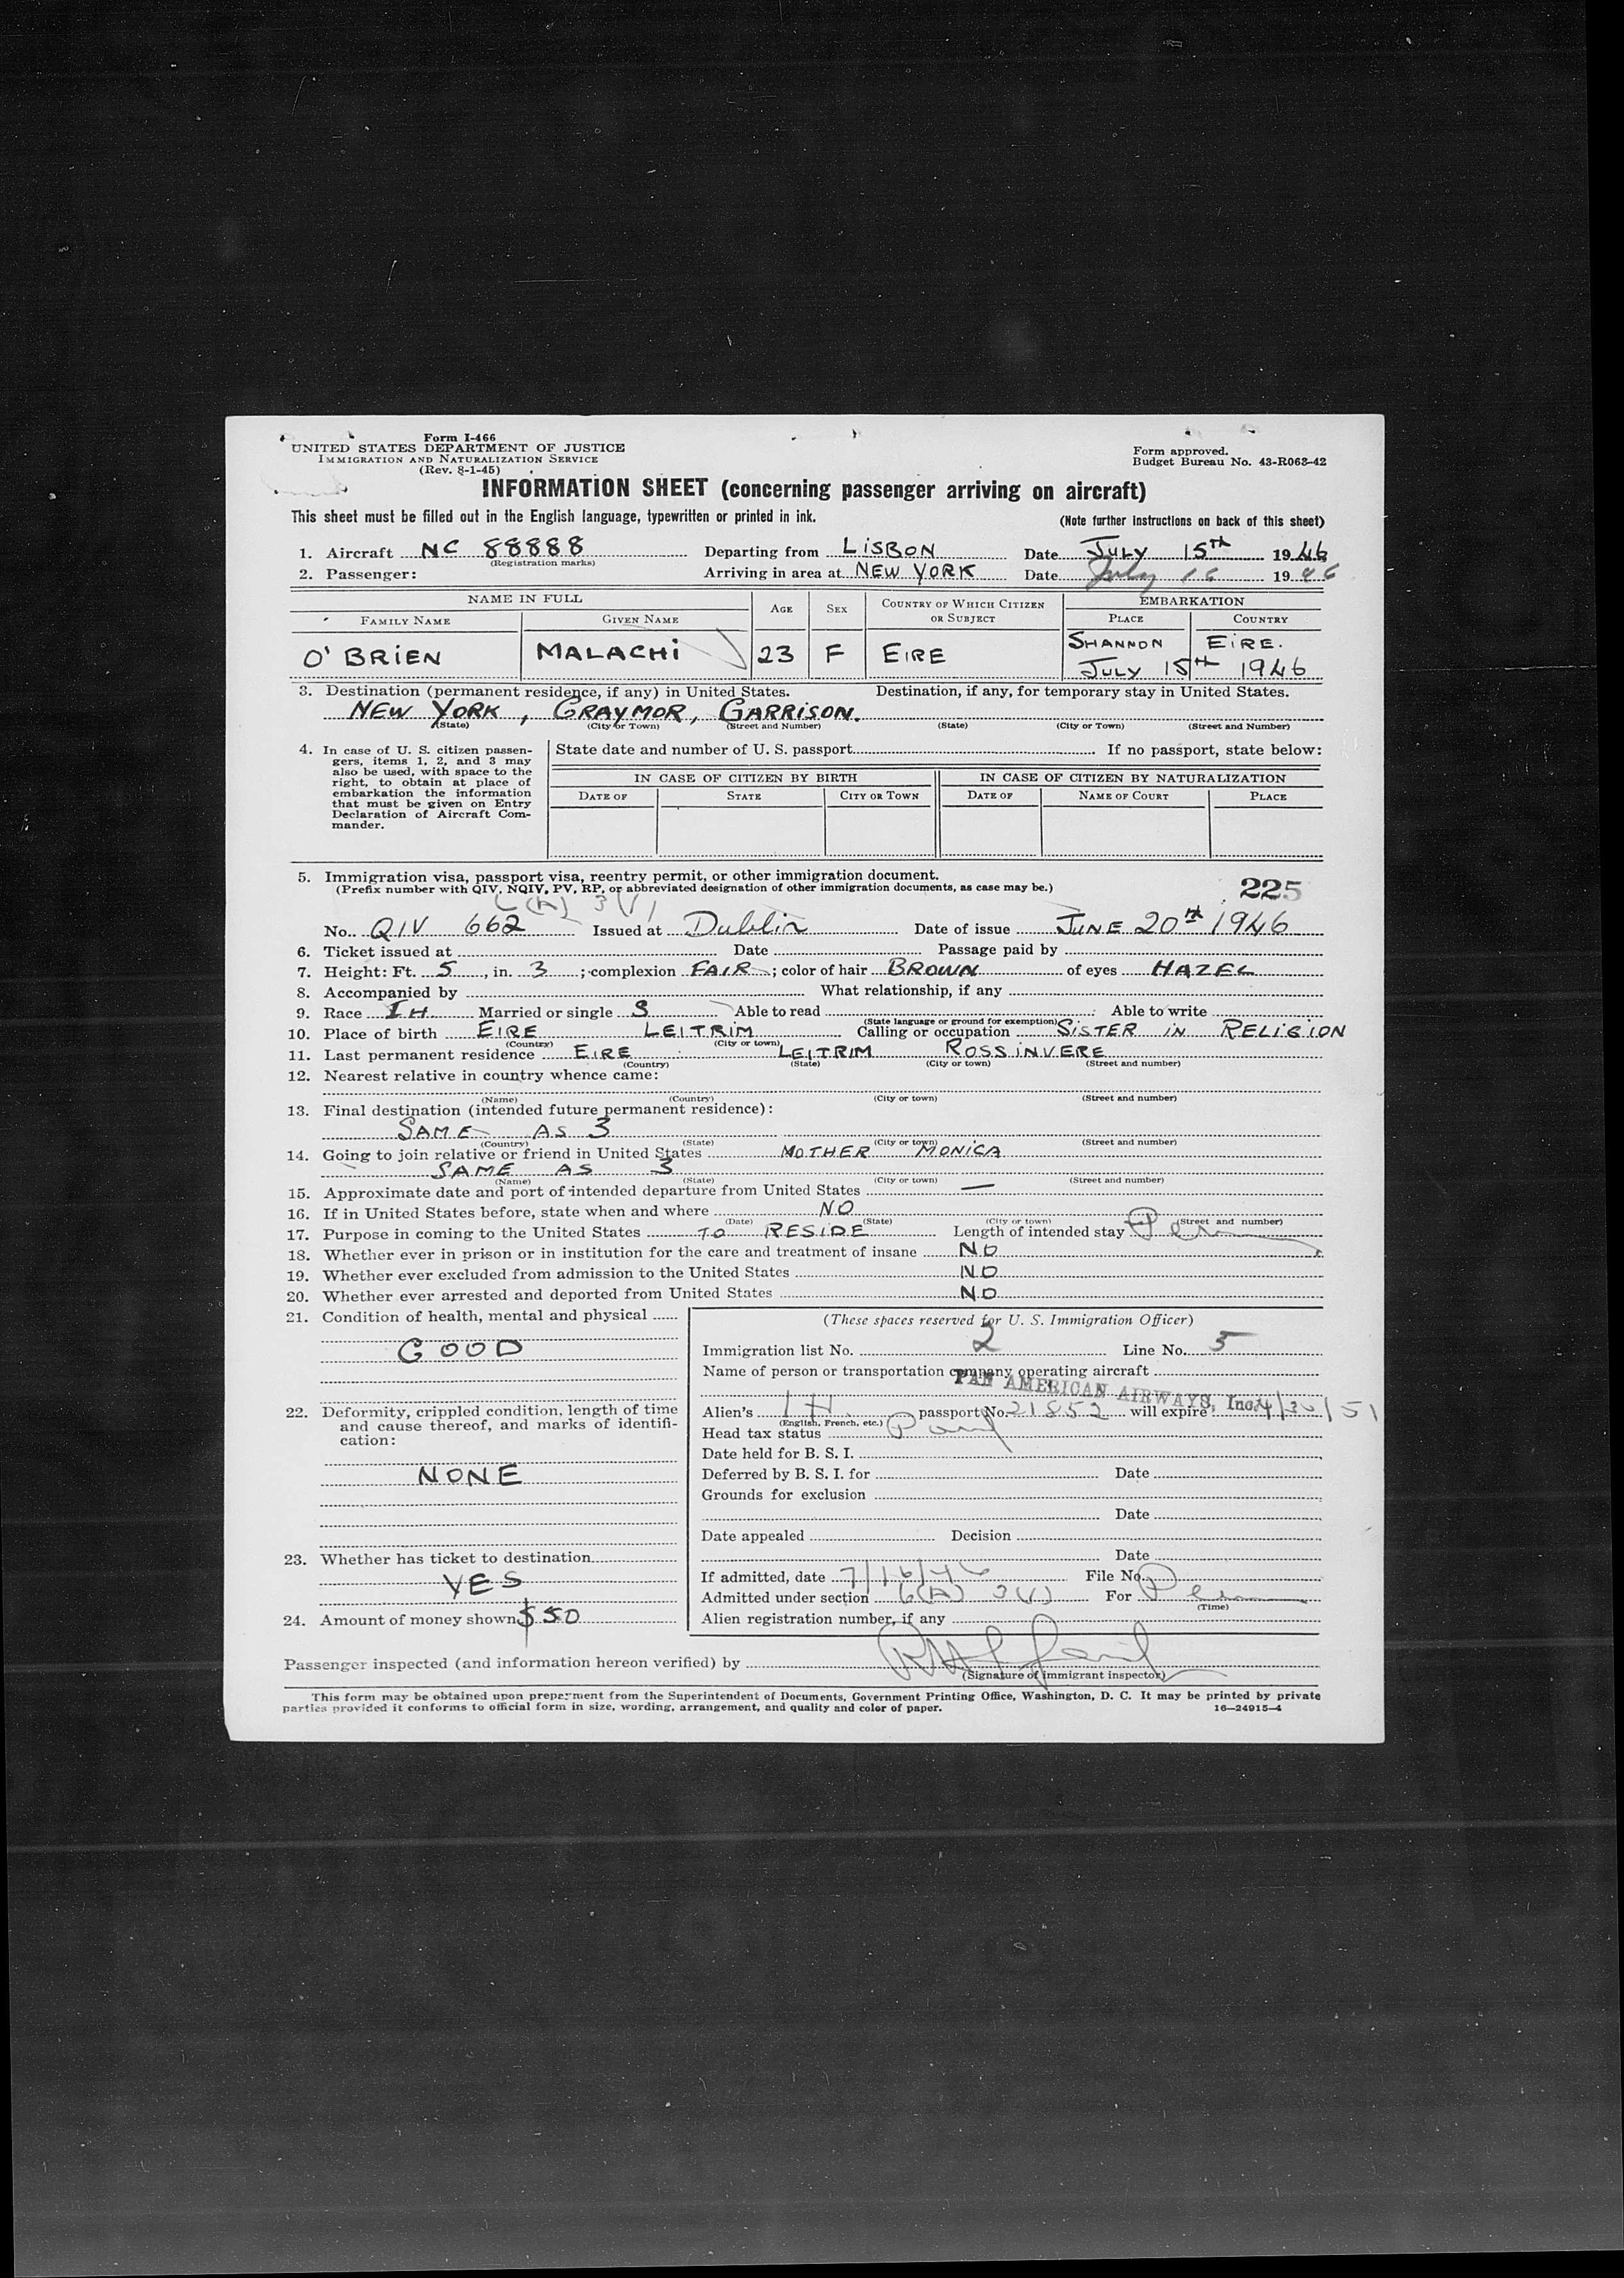 Form I-466
UNITED STATES DEPARTMENT OF JUSTICE
IMMIGRATION AND NATURALIZATION SERVICE
(Rev. 8-1-45)
Form approved.
Budget Bureau No. 43-R063-42
INFORMATION SHEET (concerning passenger arriving on aircraft)
This sheet must be filled out in the English language, typewritten or printed in ink.
(Note further instructions on back of this sheet)
1. Aircraft NC 88888 Departing from LISBON Date JULY 15TH 1946
(Registration marks)
2. Passenger: Arriving in area at NEW YORK Date July 16 1946
NAME IN FULL AGE SEX COUNTRY OF WHICH CITIZEN OR SUBJECT EMBARKATION
FAMILY NAME GIVEN NAME PLACE COUNTRY
O'BRIEN MALACHI 23 F EIRE SHANNON EIRE.
JULY 15TH 1946
3. Destination (permanent residence, if any) in United States. Destination, if any, for temporary stay in United States.
NEW YORK, GRAYMOR, GARRISON.
(State) (City or Town) (Street and Number) (State) (City or Town) (Street and Number)
4. In case of U. S. citizen passen-
gers, items 1, 2, and 3 may
also be used, with space to the
right, to obtain at place of
embarkation the information
that must be given on Entry
Declaration of Aircraft Com-
mander.
State date and number of U. S. passport If no passport, state below:
IN CASE OF CITIZEN BY BIRTH IN CASE OF CITIZEN BY NATURALIZATION
DATE OF STATE CITY OR TOWN DATE OF NAME OF COURT PLACE
5. Immigration visa, passport visa, reentry permit, or other immigration document.
(Prefix number with QIV, NQIV, PV, RP, or abbreviated designation of other immigration documents, as case may be.)
225
6(A) 3(1)
No. QIV 662 Issued at Dublin Date of issue JUNE 20th 1946
6. Ticket issued at Date Passage paid by
7. Height: Ft. 5, in. 3; complexion FAIR; color of hair BROWN of eyes HAZEL
8. Accompanied by What relationship, if any
9. Race IH Married or single S Able to read Able to write
(State language or ground for exemption)
10. Place of birth EIRE LEITRIM Calling or occupation SISTER IN RELIGION
(Country) (City or town)
11. Last permanent residence EIRE LEITRIM ROSSINVERE
(Country) (State) (City or town) (Street and number)
12. Nearest relative in country whence came:
(Name) (Country) (City or town) (Street and number)
13. Final destination (intended future permanent residence):
SAME AS 3
(Country) (State) (City or town) (Street and number)
14. Going to join relative or friend in United States MOTHER MONICA
SAME AS 3
(Name) (State) (City or town) (Street and number)
15. Approximate date and port of intended departure from United States —
16. If in United States before, state when and where NO
(Date) (State) (City or town) (Street and number)
17. Purpose in coming to the United States TO RESIDE Length of intended stay Perm
18. Whether ever in prison or in institution for the care and treatment of insane NO
19. Whether ever excluded from admission to the United States NO
20. Whether ever arrested and deported from United States NO
21. Condition of health, mental and physical
GOOD
22. Deformity, crippled condition, length of time
and cause thereof, and marks of identifi-
cation:
NONE
23. Whether has ticket to destination
YES
24. Amount of money shown $50
(These spaces reserved for U. S. Immigration Officer)
Immigration list No. 2 Line No. 5
Name of person or transportation company operating aircraft
PAN AMERICAN AIRWAYS, Inc.
Alien's IH passport No. 21852 will expire 4/30/51
(English, French, etc.)
Head tax status Paid
Date held for B. S. I.
Deferred by B. S. I. for Date
Grounds for exclusion
Date
Date appealed Decision
Date
If admitted, date 7/16/46 File No.
Admitted under section 6(A) 3(1) For Perm
(Time)
Alien registration number, if any
Passenger inspected (and information hereon verified) by
(Signature of immigrant inspector)
This form may be obtained upon prepayment from the Superintendent of Documents, Government Printing Office, Washington, D. C. It may be printed by private
parties provided it conforms to official form in size, wording, arrangement, and quality and color of paper. 16—24915-4